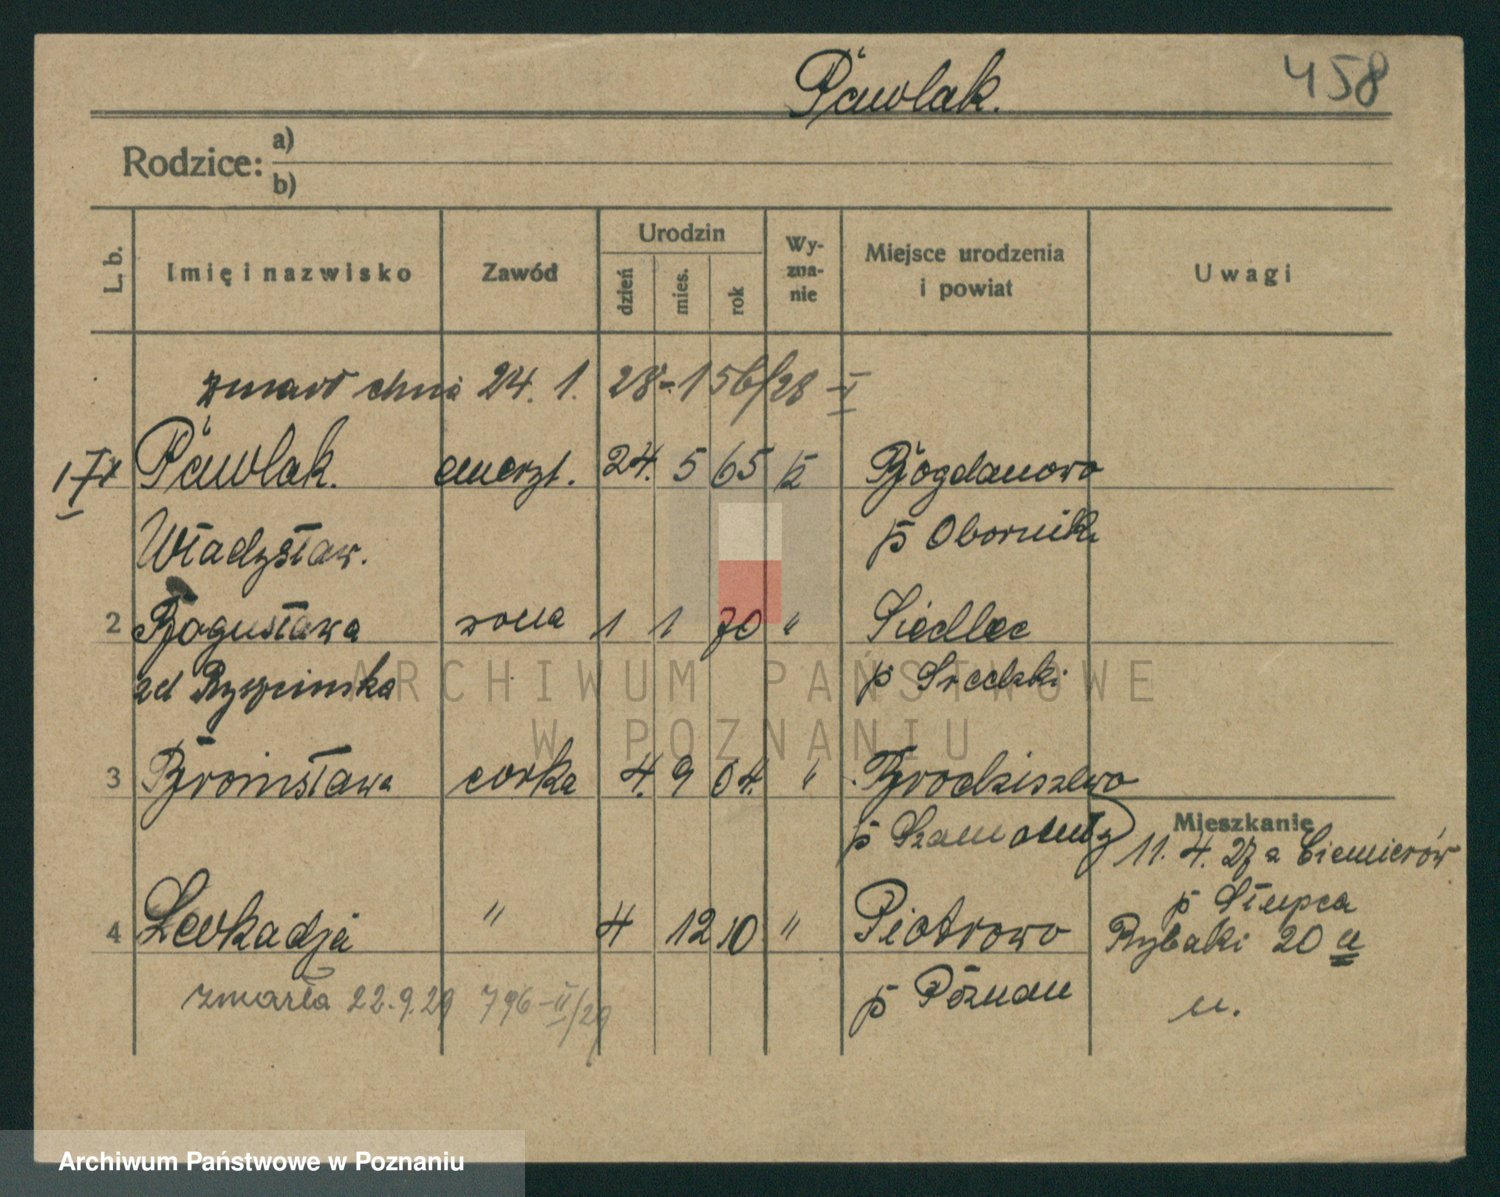 Pawlak. 458
Rodzice: a)
b)
L. b. Imię i nazwisko Zawód Urodzin dzień mies. rok Wyzna-nie Miejsce urodzenia i powiat Uwagi
zmarł dnia 24. 1. 28 - 156/28 - II
1 Pawlak. emeryt. 24. 5 65 Bogdanowo
Władysław. p Obornik
2 Bogusława żona 1 1 70 " Siedlec
zd p Średzki
3 Bronisława córka 4. 9 04. " Brodziszewo
p Szamotuły
Mieszkanie
11. 4. 27 z Ciemierów
p Słupca
4 Leokadja " 4 12 10 " Piotrowo Rybaki 20 a
zmarła 22.9.29 796-II/29 p Poznań u.
ARCHIWUM PAŃSTWOWE
W POZNANIU
Archiwum Państwowe w Poznaniu